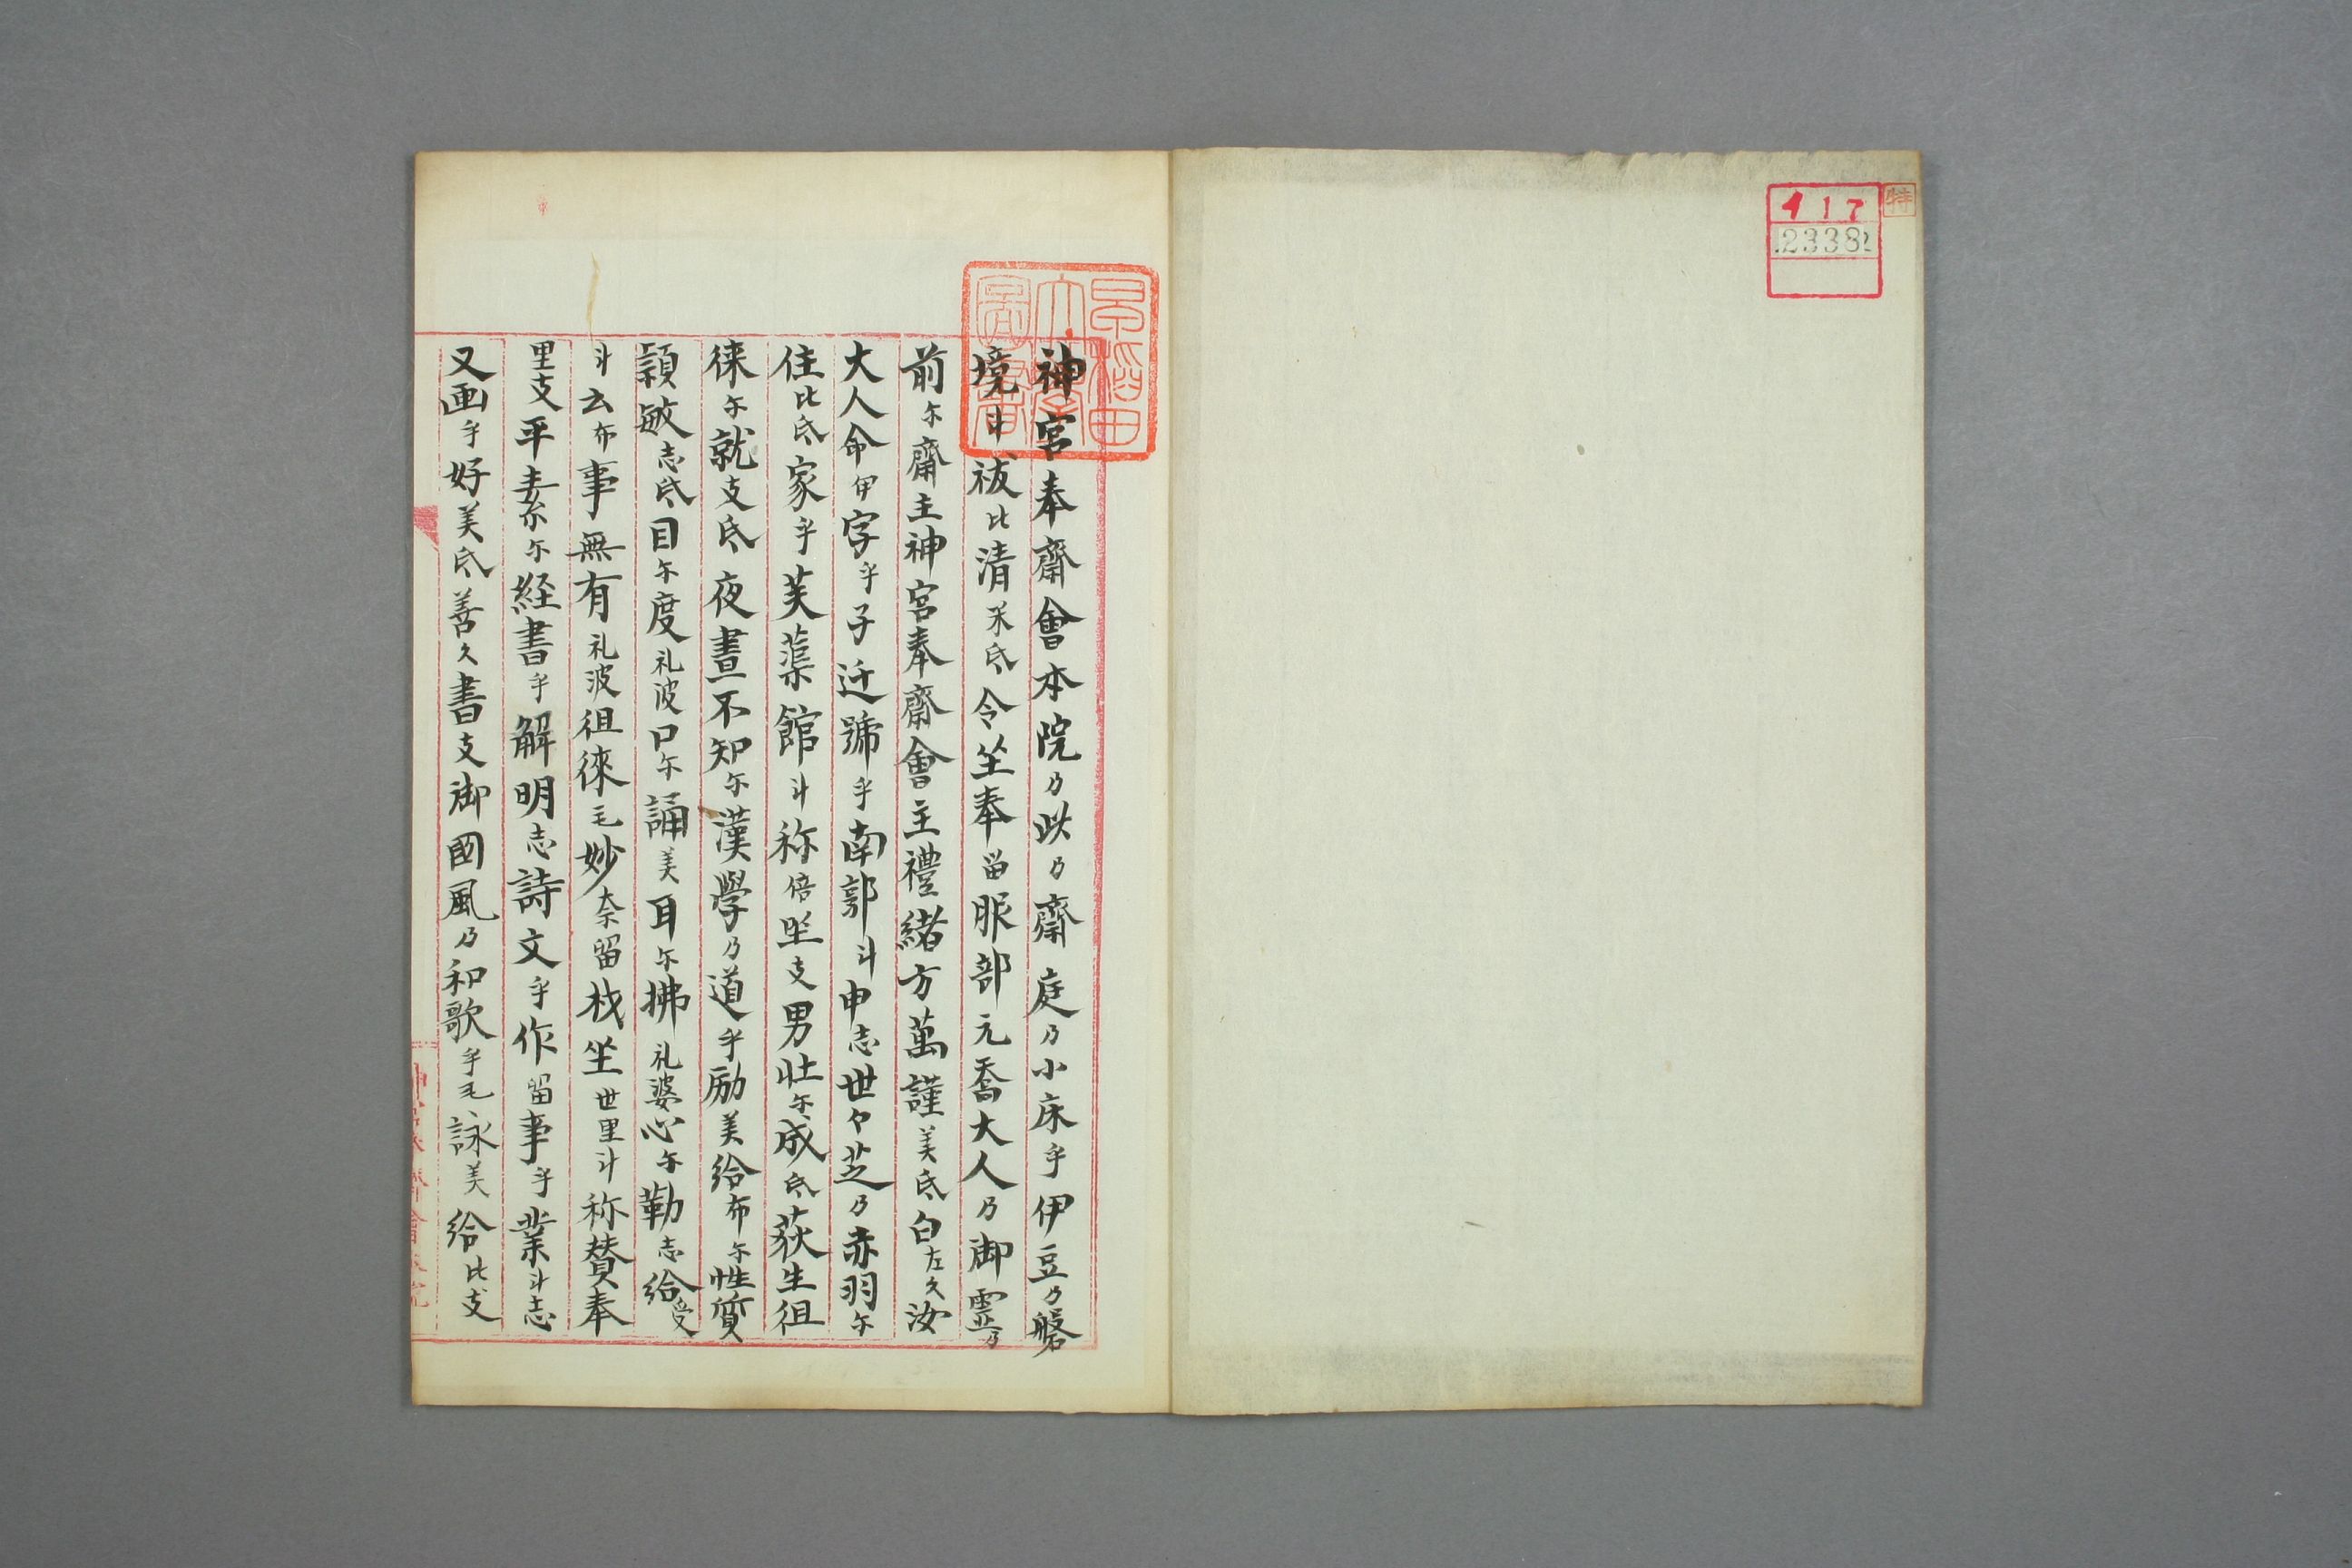 特
417
12338
早稲田大学図書
神宮奉齋會本院乃此乃齋庭乃小床乎伊豆乃磐
境斗祓比清米氐令坐奉留服部元喬大人乃御霊乃
前尓齋主神宮奉齋會主禮緒方萬謹美氐白左久汝
大人命伊字乎子迁號乎南郭斗申志世々芝乃赤羽尓
住比氐家乎芙蕖館斗称倍坐支男壮尓成氐荻生徂
徠尓就支氐夜晝不知尓漢學乃道乎励美給布尓性質
穎敏志氐目尓度礼波口尓誦美耳尓拂礼婆心尓勒志給受
斗云布事無有礼波徂徠毛妙奈留材坐世里斗称賛奉
里支平素尓経書乎解明志詩文乎作留事乎業斗志
又画乎好美氐善久書支御國風乃和歌乎毛詠美給比支
神宮奉齋會本院